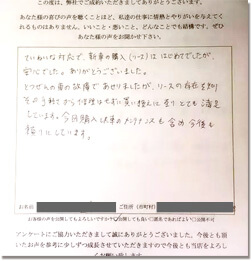 この度は、弊社でご成約いただきましてありがとうございます。
あなた様の喜びの声を聴くことほど、私達の仕事に情熱とやりがいを与えてく
れるものはありません。いいこと・悪いこと。どんなことでも結構です。ぜひ
あなた様の声をお聞かせ下さい。
ていねいな対応で、新車の購入（リース）ははじめてでしたが、
安心でした。ありがとうございました。
とつぜんの車の故障であせりましたが、リースの存在を知り
その手軽さから修理せずに買い替えに至り とても満足
しています。今日購入以来のメンテナンスも含め 今後も
頼りにしています。
お名前 ご住所（市町村）
お客様の声を公開してもよろしいですか
アンケートにご協力いただきまして誠にありがとうございました。今後とも頂
いたお声を参考に少しずつ成長させていただきますので今後とも当店をよろし
くお願い致します